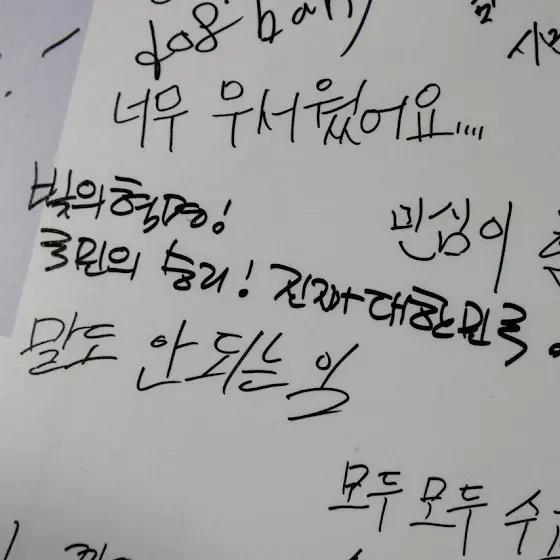 너무 우서웠어요....
빛의혁명!
민심이
국민의 승리! 진짜 대한민국.
말도 안되는 일
모두모두 수